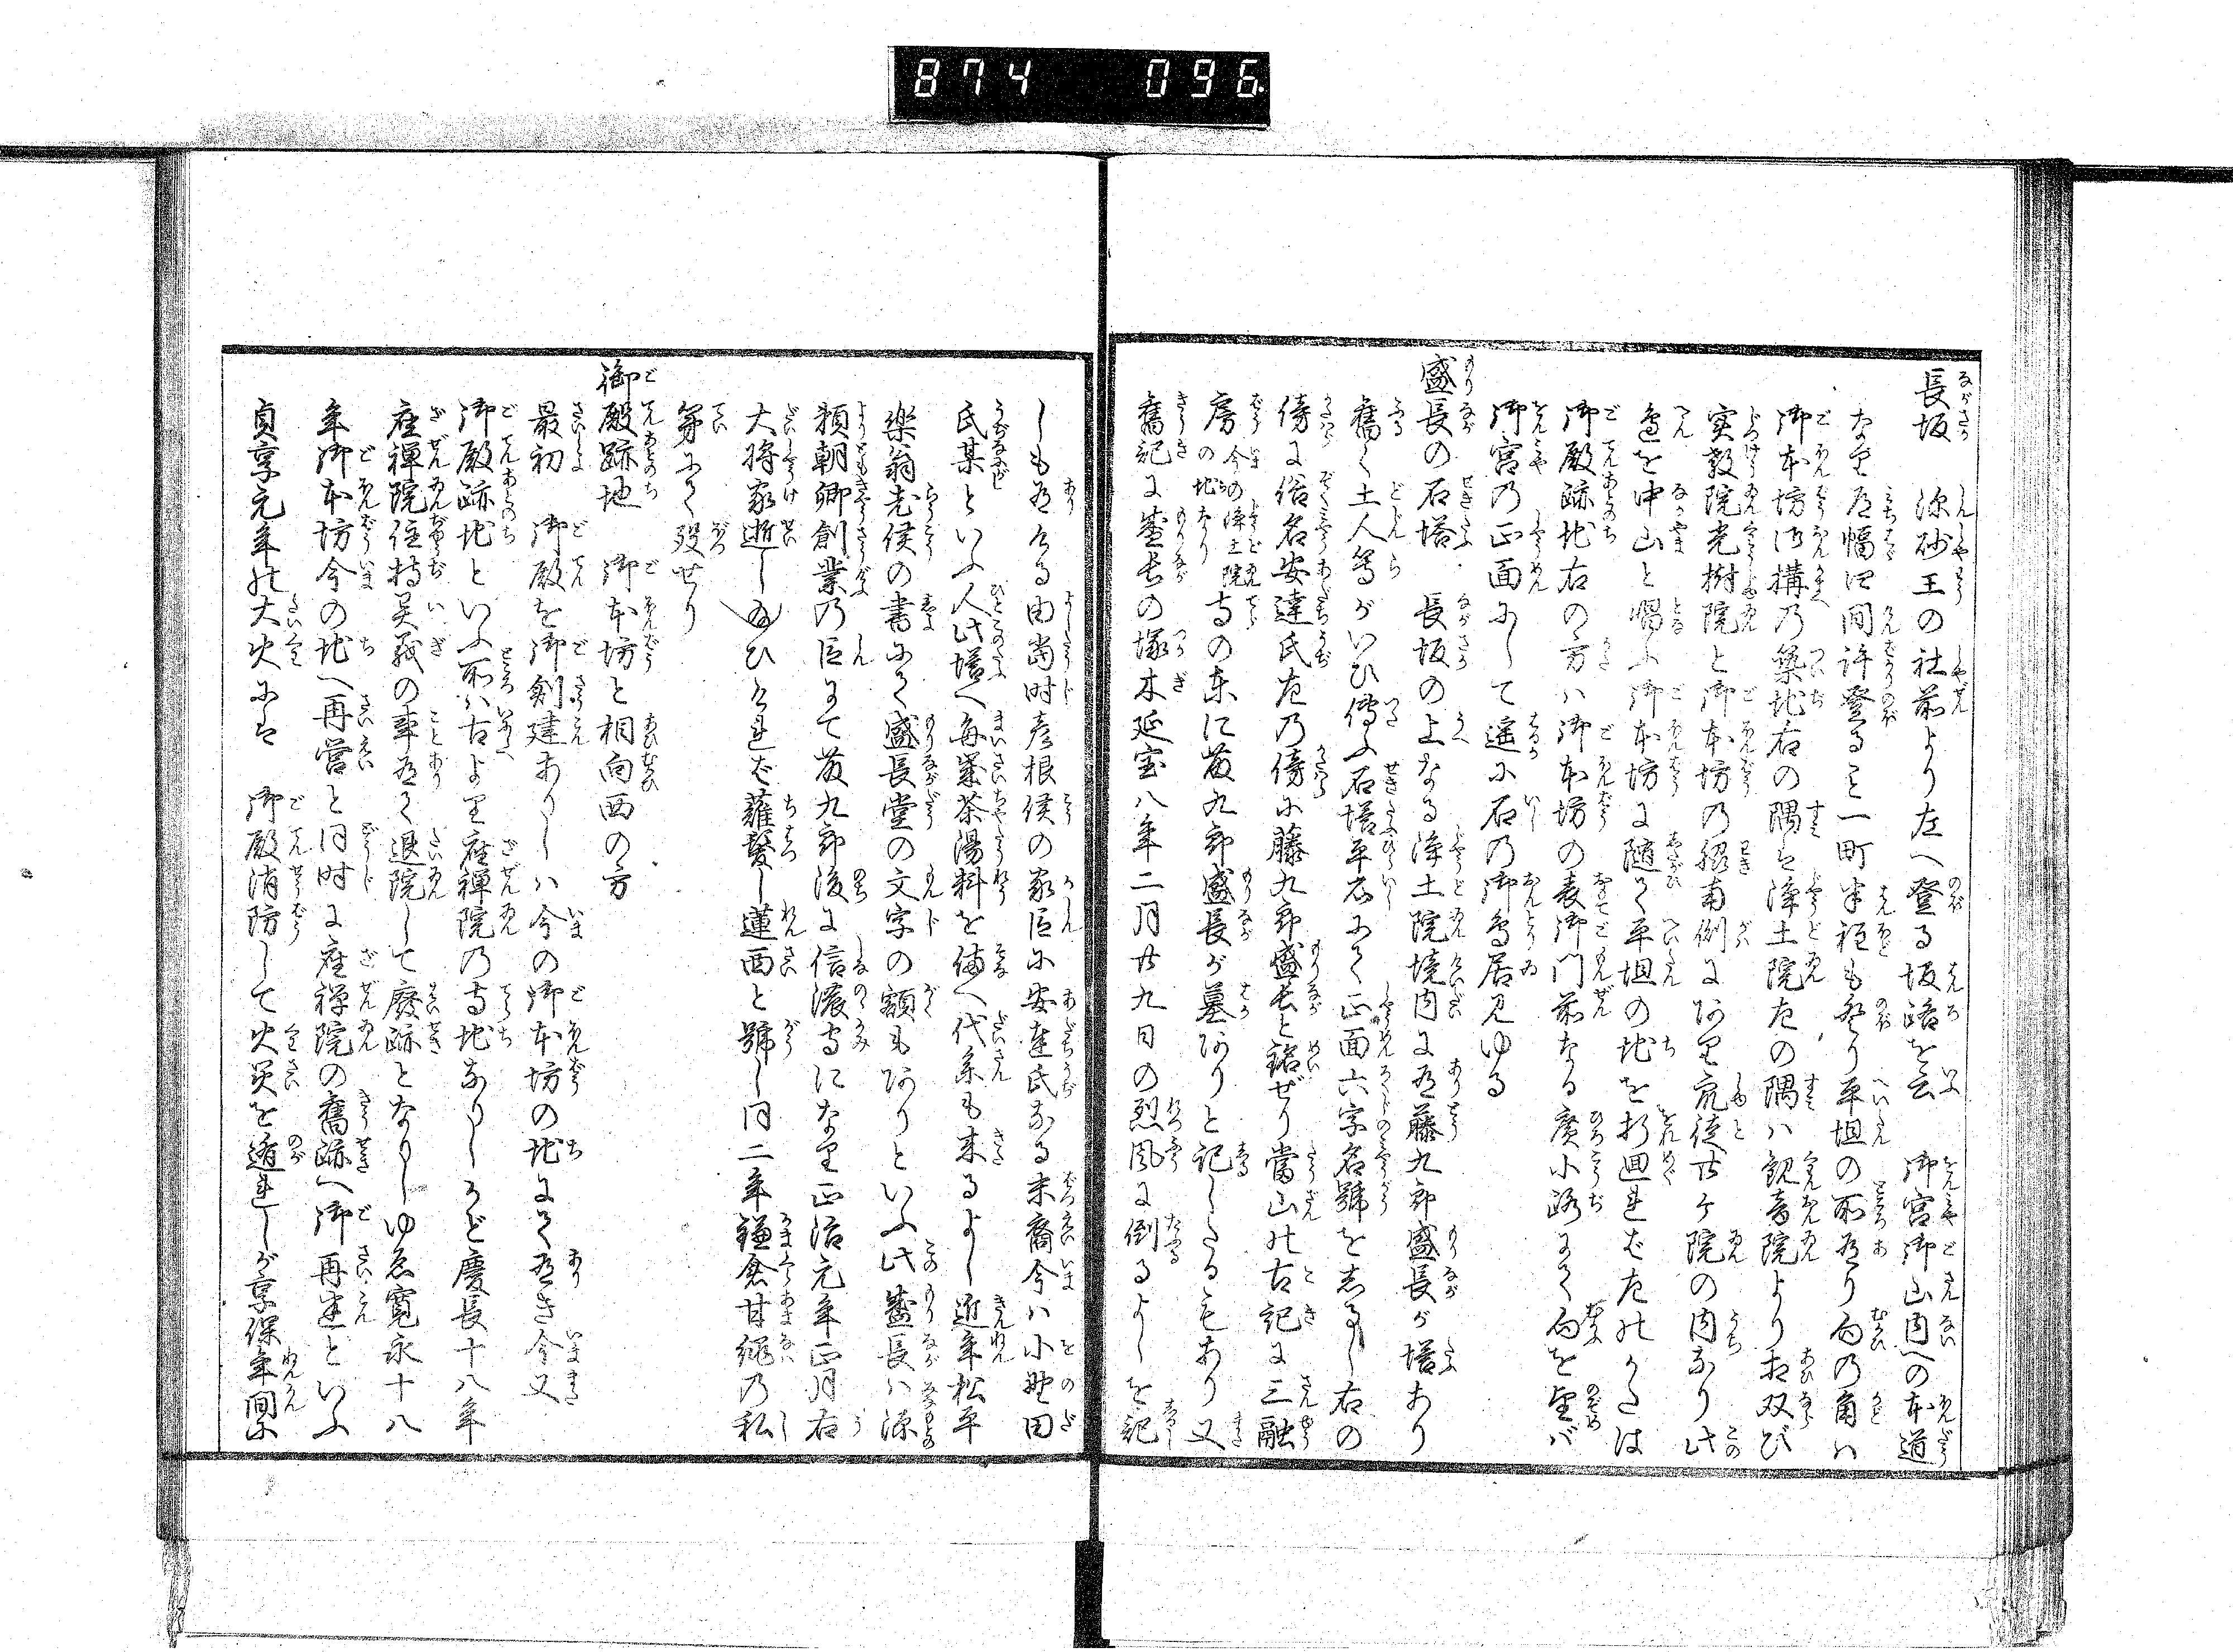 874 096
長坂 深砂王の社前より左へ登る坂路を云 御宮御山内への本道
なり道幅四間許登ること一町半程も登り平坦の所有り向の角は
御本坊御構の築地右の隅は浄土院左の隅は観音院より相双び
実教院光樹院と御本坊の 南側にあり衆徒廿ヶ院の内なり此
邊を中山と唱ふ御本坊に随て平坦の地を折廻れば左のかたは
御殿跡地右の方は御本坊の表御門前なる廣小路にて向を望ば
御宮の正面にして遥に石の御鳥居見ゆる
盛長の石塔 長坂の上なる浄土院境内に有藤九郎盛長が塔あり
舊く土人等がいひ傳ふ石塔平石にて正面六字名號をしるし右の
傍に俗名安達氏左の傍に藤九郎盛長と銘ぜり當山の古記に三融
房今の浄土院の地なり寺の東に藤九郎盛長が墓ありと記したるもあり又
舊記に盛長の塚木延宝八年二月廿九日の烈風に倒るよしを記
しも有ける由當時彦根侯の家臣に安達氏なる末裔今は小野田
氏某といふ人此塔へ毎歳茶湯料を備へ代参も来るよし近年松平
楽翁老侯の書にて盛長堂の文字の額もありといふ此盛長は源
頼朝卿創業の臣にて藤九郎後に信濃守になり正治元年正月右
大将家逝し給ひければ薙髪し蓮西と號し同二年鎌倉甘縄の私
第にて殁せり
御殿跡地 御本坊と相向西の方
最初 御殿を御創建ありしは今の御本坊の地にて有き今又
御殿跡地といふ所は古より座禅院の寺地なりしかど慶長十八年
座禅院住持異義の事有て退院して廢跡となりしゆゑ寛永十八
年御本坊今の地へ再営と同時に座禅院の舊跡へ御再建といふ
貞享元年の大火にも 御殿消防して火災を遁れしが享保年間に